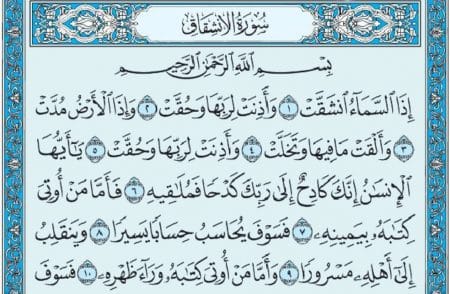 سُورَةُ الِانشِقَاقِ
بِسْمِ اللَّهِ الرَّحْمَٰنِ الرَّحِيمِ
إِذَا السَّمَآءُ انشَقَّتْ ١ وَأَذِنَتْ لِرَبِّهَا وَحُقَّتْ ٢ وَإِذَا الْأَرْضُ مُدَّتْ
٣ وَأَلْقَتْ مَا فِيهَا وَتَخَلَّتْ ٤ وَأَذِنَتْ لِرَبِّهَا وَحُقَّتْ ٥ يَٰٓأَيُّهَا
الْإِنسَٰنُ إِنَّكَ كَادِحٌ إِلَىٰ رَبِّكَ كَدْحًا فَمُلَٰقِيهِ ٦ فَأَمَّا مَنْ أُوتِىَ
كِتَٰبَهُۥ بِيَمِينِهِۦ ٧ فَسَوْفَ يُحَاسَبُ حِسَابًا يَسِيرًا ٨ وَيَنقَلِبُ
إِلَىٰٓ أَهْلِهِۦ مَسْرُورًا ٩ وَأَمَّا مَنْ أُوتِىَ كِتَٰبَهُۥ وَرَآءَ ظَهْرِهِۦ ١٠ فَسَوْفَ